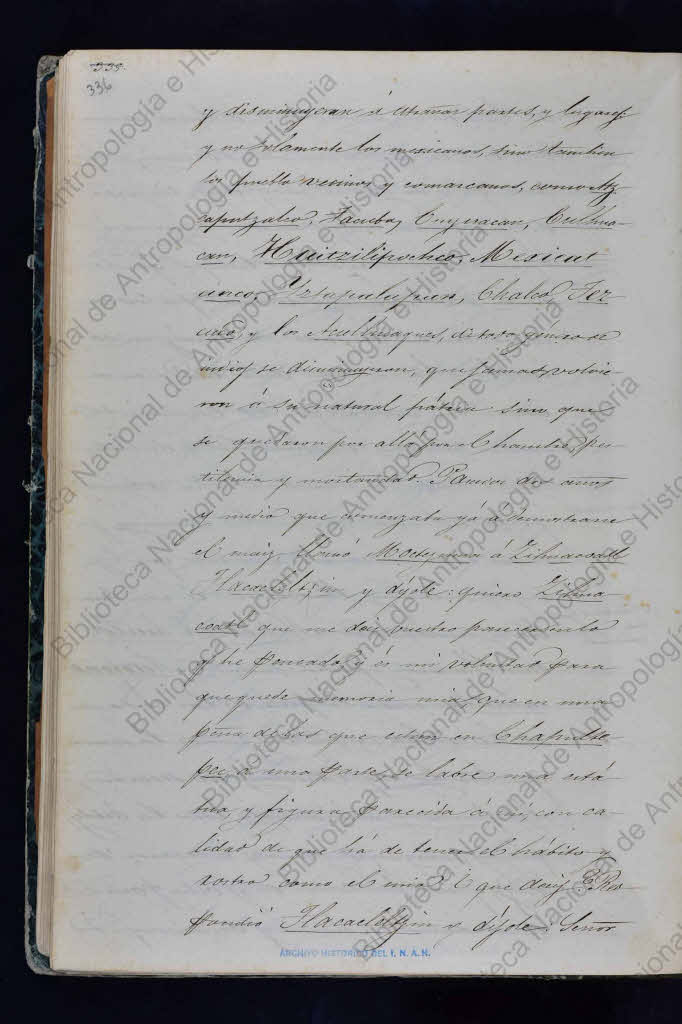 335
336
y disminuyeran á estrañas partes, y lugares
y no solamente los mexicanos, sino tambien
los pueblo vecinos y comarcanos, como Atz
caputzalco, Tacuba, Cuyuacan, Culhua-
can, Huitzilipochco, Mexicat
cinco, Yztapalapan, Chalco, Tez
cuco, y los Aculhuaques, de todo género de
indios se disminuyeron, que jamas volvie
ron á su natural pátria sino que
se quedaron por allá por el hambre, pes
tilencia y mortandad. Pasados dos años
y medio que comenzaba yá á demostrarse
el maiz, llamó Moctezuma á Zihuacoatl
Tlacaeleltzin y díjole: quiero Zihua
coatl que me deis vuestro parecer en lo
q he pensado, y és mi voluntad para
que quede memoria mia, que en una
peña de las que estan en Chapulte
pec, á una parte, se labre una está
tua, y figura parecida á mí, con ca-
lidad de que há de tener el hábito y
rostro como el mio: ¿ que decis? Res
pondió Tlacaeleltzin y díjole: Señor
ARCHIVO HISTORICO DEL I. N. A. H.
Biblioteca Nacional de Antropología e Historia